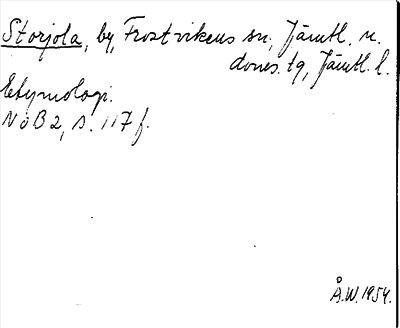 Storjola, by, Frostvikens sn, Jämtl. n.
doms. tg, Jämtl. l.
Etymologi.
NoB 2, s. 117 f.
Å.W. 1954.